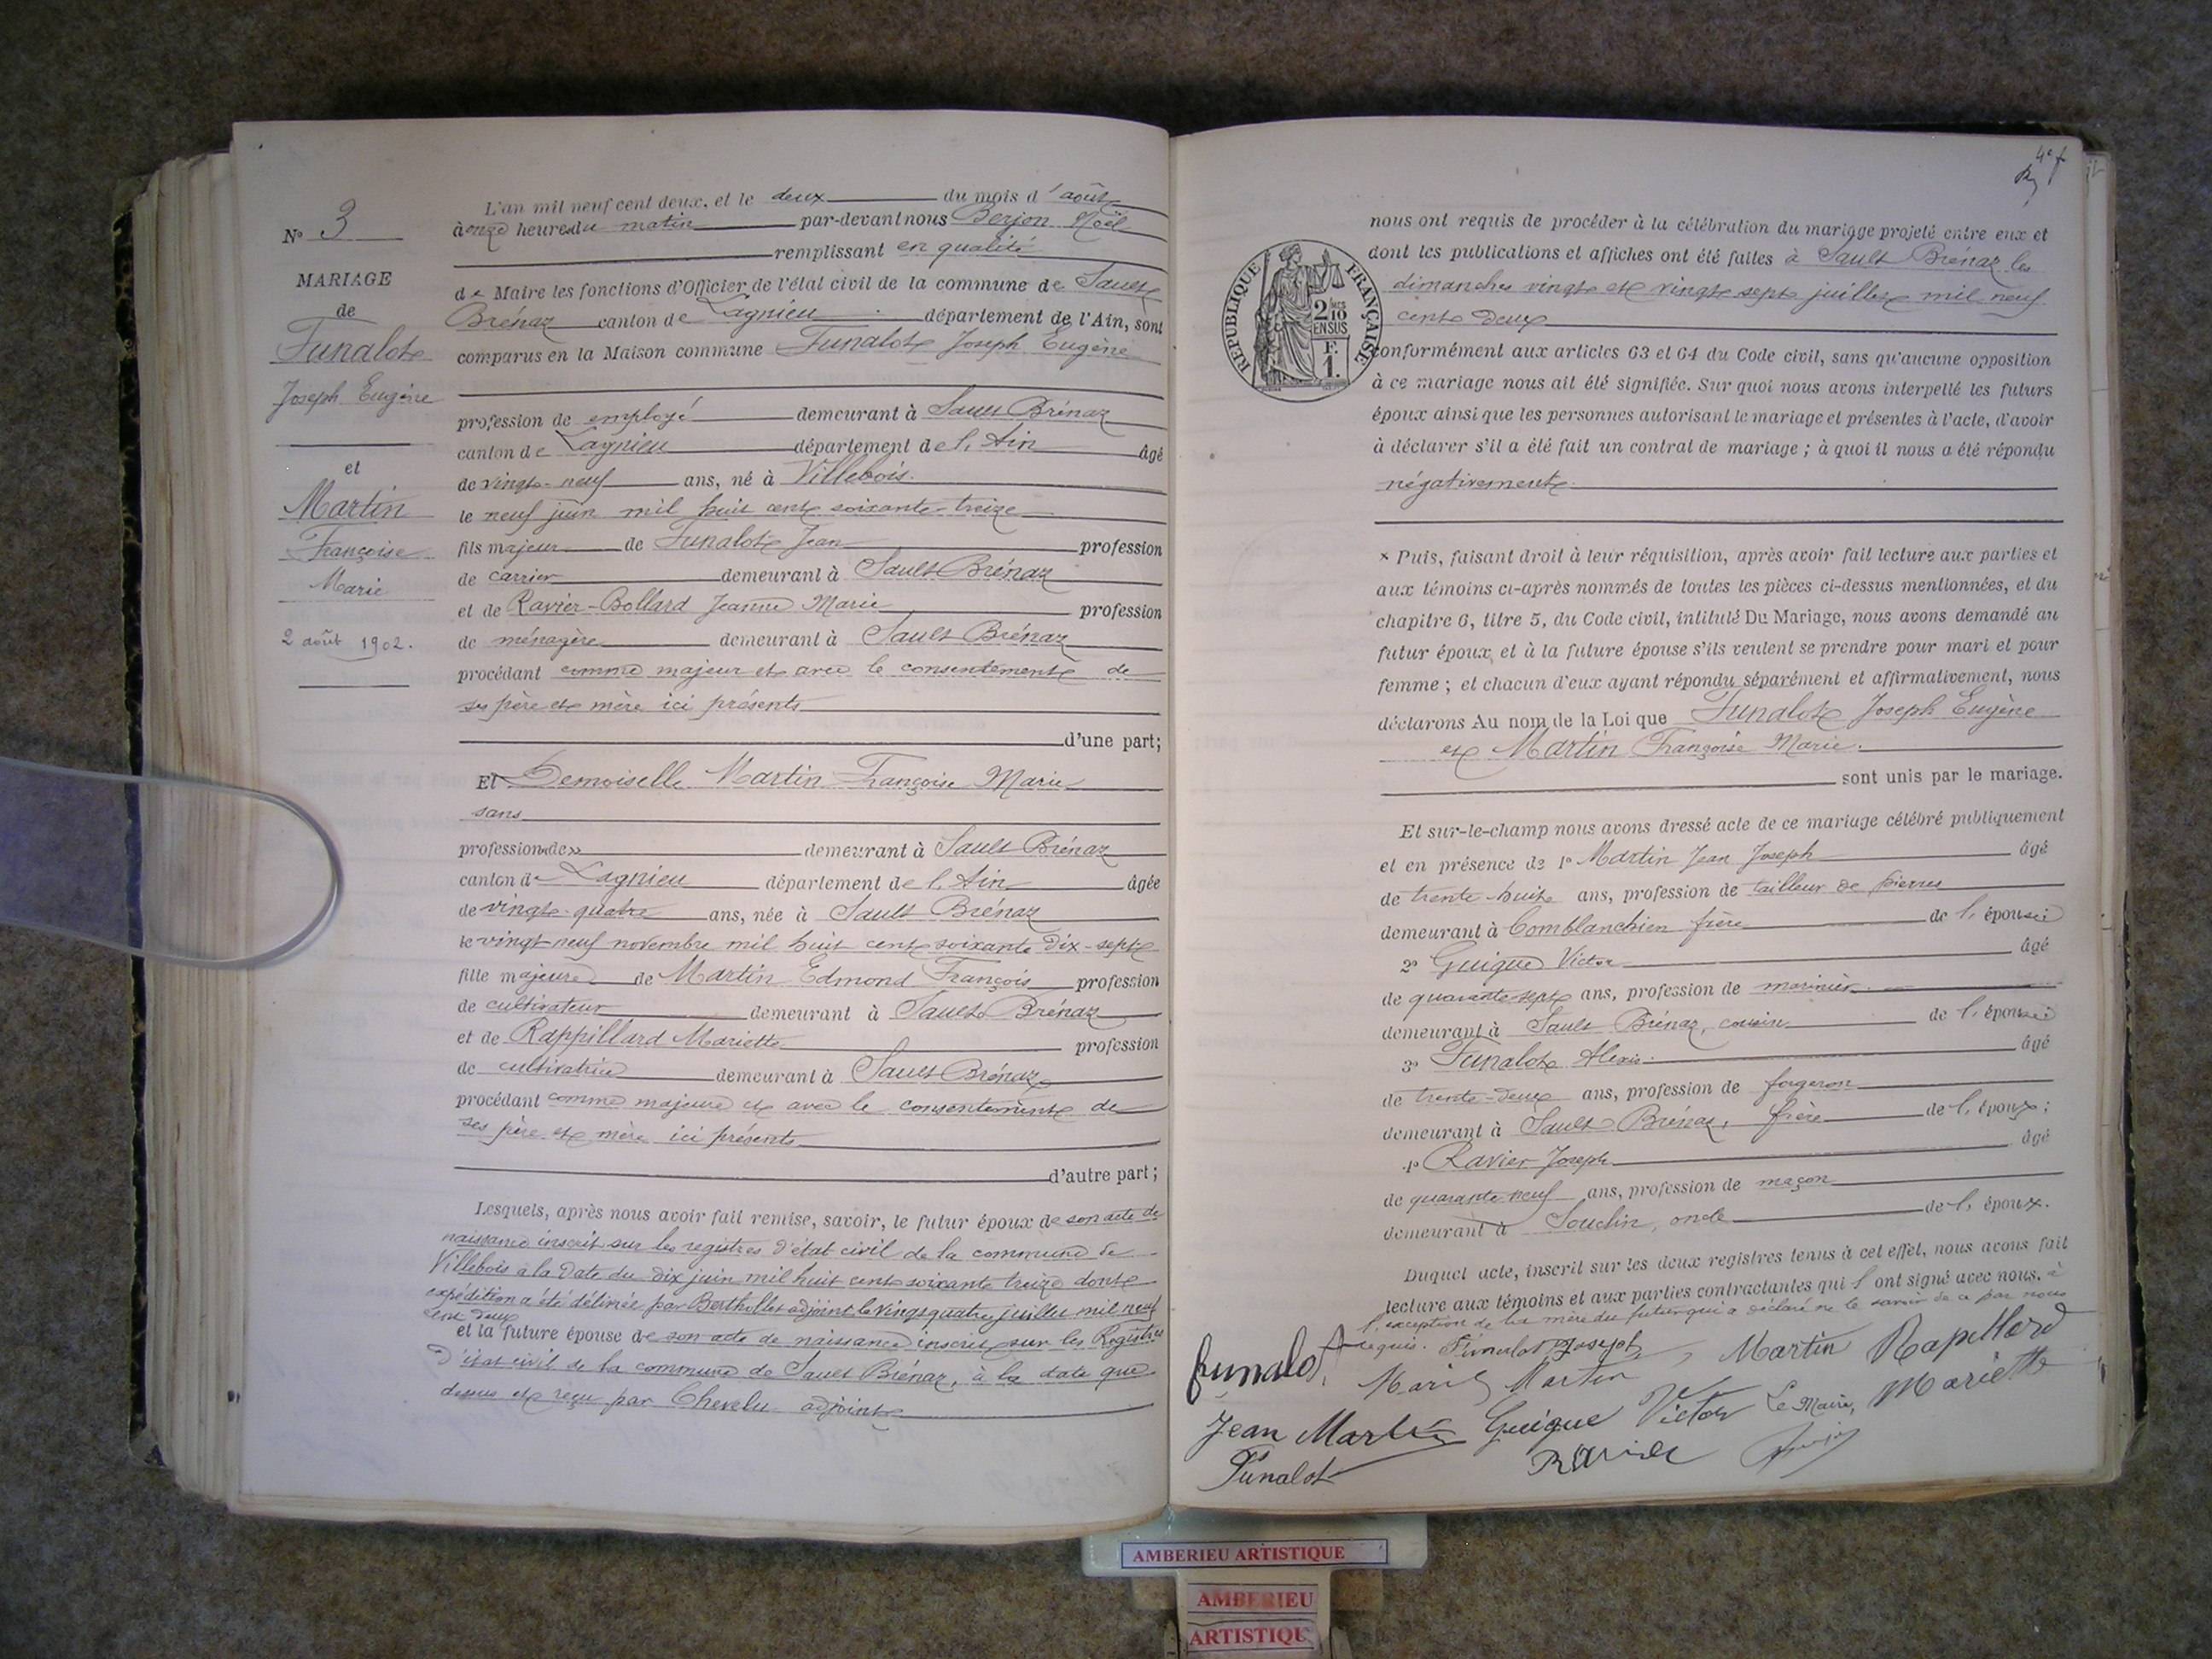 N° 3
MARIAGE
de
Funalot
Joseph Eugène
et
Martin
Françoise
Marie
2 août 1902.
L'an mil neuf cent deux, et le deux du mois d'août
à onze heures du matin par-devant nous Berjon Noël
remplissant en qualité
de Maire les fonctions d'Officier de l'état civil de la commune de Sault
Brénaz canton de Lagnieu département de l'Ain, sont
comparus en la Maison commune Funalot Joseph Eugène
profession de employé demeurant à Sault Brénaz
canton de Lagnieu département de l'Ain âgé
de vingt-neuf ans, né à Villebois.
le neuf juin mil huit cent soixante-treize
fils majeur de Funalot Jean profession
de carrier demeurant à Sault Brénaz
et de Ravier-Bollard Jeanne Marie profession
de ménagère demeurant à Sault Brénaz
procédant comme majeur et avec le consentement de
ses père et mère ici présents
d'une part;
Et Demoiselle Martin Françoise Marie
sans
profession «de» demeurant à Sault Brénaz
canton de Lagnieu département de l'Ain âgée
de vingt-quatre ans, née à Sault Brénaz
le vingt neuf novembre mil huit cent soixante dix-sept
fille majeure de Martin Edmond François profession
de cultivateur demeurant à Sault Brénaz
et de Rappillard Mariette profession
de cultivatrice demeurant à Sault Brénaz
procédant comme majeure et avec le consentement de
ses père et mère ici présents
d'autre part;
Lesquels, après nous avoir fait remise, savoir, le futur époux de son acte de
naissance inscrit sur les registres d'état civil de la commune de
Villebois à la date du dix juin mil huit cent soixante treize dont
expédition a été délivrée par Berthollet adjoint le vingt quatre juillet mil neuf
cent deux
et la future épouse de son acte de naissance inscrit sur les Registres
d'état civil de la commune de Sault Brénaz, à la date que
dessus et reçu par Chevelu adjoint
4e f
nous ont requis de procéder à la célébration du mariage projeté entre eux et
dont les publications et affiches ont été faites à Sault Brénaz les
dimanches vingt et vingt sept juillet mil neuf
cent deux
conformément aux articles 63 et 64 du Code civil, sans qu'aucune opposition
à ce mariage nous ait été signifiée. Sur quoi nous avons interpellé les futurs
époux ainsi que les personnes autorisant le mariage et présentes à l'acte, d'avoir
à déclarer s'il a été fait un contrat de mariage; à quoi il nous a été répondu
négativement.
REPUBLIQUE FRANÇAISE
2/10 EN SUS
F.
1.
× Puis, faisant droit à leur réquisition, après avoir fait lecture aux parties et
aux témoins ci-après nommés de toutes les pièces ci-dessus mentionnées, et du
chapitre 6, titre 5, du Code civil, intitulé Du Mariage, nous avons demandé au
futur époux et à la future épouse s'ils veulent se prendre pour mari et pour
femme; et chacun d'eux ayant répondu séparément et affirmativement, nous
déclarons Au nom de la Loi que Funalot Joseph Eugène
et Martin Françoise Marie.
sont unis par le mariage.
Et sur-le-champ nous avons dressé acte de ce mariage célébré publiquement
et en présence de 1° Martin Jean Joseph âgé
de trente-huit ans, profession de tailleur de pierres
demeurant à Comblanchien frère de l'épousée
2° Guigue Victor âgé
de quarante-sept ans, profession de marinier
demeurant à Sault Brénaz, cousin de l'épousée
3° Funalot Alexis. âgé
de trente-deux ans, profession de forgeron
demeurant à Sault Brénaz, frère de l'époux;
4° Ravier Joseph âgé
de quarante neuf ans, profession de maçon
demeurant à Souclin, oncle de l'époux.
Duquel acte, inscrit sur les deux registres tenus à cet effet, nous avons fait
lecture aux témoins et aux parties contractantes qui l'ont signé avec nous, à
l'exception de la mère du futur qui a déclaré ne le savoir de ce par nous
requis. Funalot Joseph
funalot Marie Martin Martin Rapillard
Mariette
Jean Martin Guigue Victor Le Maire,
Funalot Ravier
AMBERIEU ARTISTIQUE
AMBERIEU
ARTISTIQU